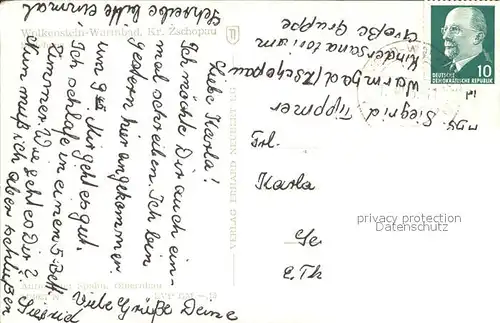 Wolkenstein-Warmbad, Kr. Zschopau
Liebe Karla!
Ich möchte Dir auch ein-
mal schreiben. Ich bin
gestern hier angekommen
um 9. Mir geht es gut.
Ich schlafe in einem 5-Bett
Zimmer. Wie geht es Dir?
Nun muß ich aber schließen
Viele Grüße Deine
Siegrid
Schreibe bitte einmal
VERLAG ERHARD NEUBERT KG
Abs. Siegrid Tippmer
Warmbad/Zschopau
Kindersanatorium
Große Gruppe
10
DEUTSCHE
DEMOKRATISCHE REPUBLIK
Frl.
Karla
privacy protection
Datenschutz